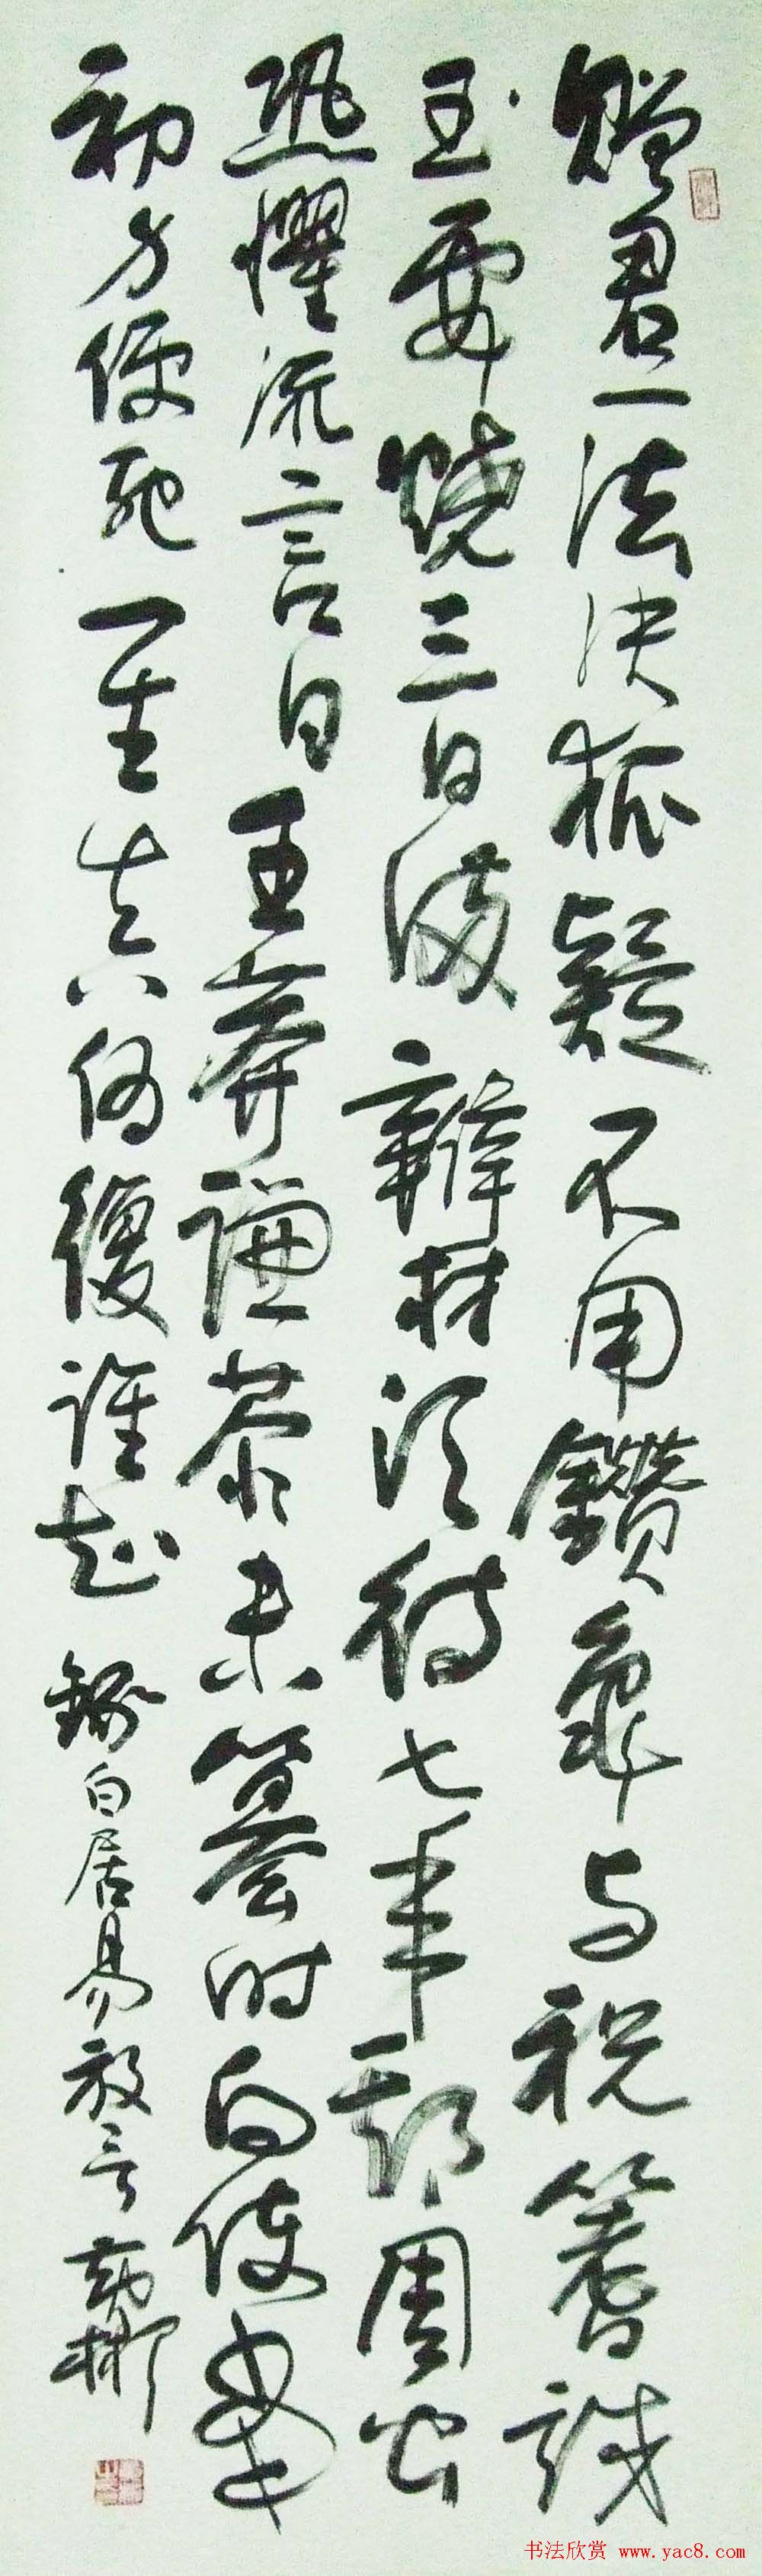 贈君一法决狐疑不用鑽龜与祝蓍試
玉要燒三日满辨材須待七年期周公
恐懼流言日王莽謙恭未篡时向使當
初身便死一生真偽復誰知 錄白居易放言
书法欣赏 www.yac8.com